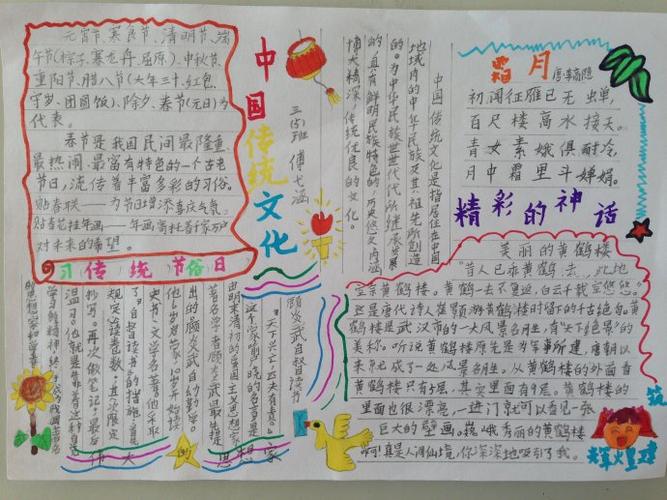 元宵节、寒食节、清明节、端
午节(粽子、赛龙舟、屈原)、中秋节、
重阳节、腊八节(大年三十、红包、
守岁、团圆饭)、除夕、春节(元日)为
代表。
春节是我国民间最隆重、
最热闹、最富有特色的一个古老
节日,流传着丰富多彩的习俗。
贴春联——为节日增添喜庆气氛
对未来的希望。
习传统节俗日
中国传统文化
中国传统文化是指居住在中国
地域内的中华民族及其祖先所创造
的、为中华民族世世代代所继承发展
的、具有鲜明民族特色的、历史悠久、内涵
博大精深、传统优良的文化。
霜月
唐·李商隐
初闻征雁已无蝉,
百尺楼高水接天。
青女素娥俱耐冷,
月中霜里斗婵娟。
精彩的神话
美丽的黄鹤楼
"昔人已乘黄鹤去,此地
空余黄鹤楼。黄鹤一去不复返,白云千载空悠悠。"
这是唐代诗人崔颢游黄鹤楼时留的千古绝句。黄
鹤楼是武汉市的一大风景名胜,有"天下绝景"的
美称。听说黄鹤楼原先是为军事所建,唐朝以
来就成了一处风景名胜,从黄鹤楼的外面看
黄鹤楼只有5层,其实里面有9层。黄鹤楼的
里面也很漂亮,一进门就可以看见一张
巨大的壁画。巍峨秀丽的黄鹤楼
啊!真是人间仙境,你深深地吸引了我。
顾炎武自督读书
"天下兴亡,匹夫有责。"
这个家喻户晓的名言是
由明末清初的爱国主义思想家、
著名学者顾炎武最先提
出的。顾炎武自幼勤学。
他6岁启蒙,10岁开始读
史书、文学名著。他采取
了"自督读书"的措施:首先
规定
抄写。再次做笔记;最后
温习。他就是靠着这种自督
伟大的思想家
辉火星建筑